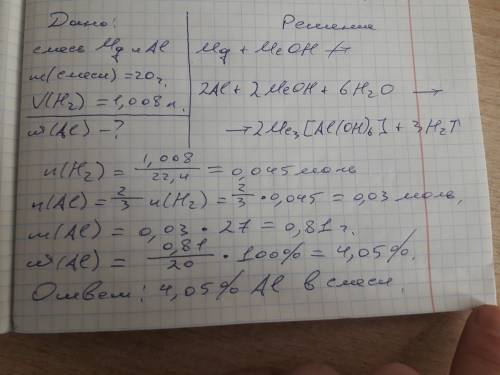 Дано:
смесь Mg и Al
m(смеси) = 20 г.
V(H₂) = 1,008 л.
ω(Al) – ?
Решение
Mg + MeOH ↛
2Al + 2MeOH + 6H₂O →
→ 2Me₃[Al(OH)₆] + 3H₂↑
n(H₂) = 1,008/22,4 = 0,045 моль
n(Al) = 2/3 n(H₂) = 2/3 · 0,045 = 0,03 моль.
m(Al) = 0,03 · 27 = 0,81 г.
ω(Al) = 0,81/20 · 100% = 4,05%.
Ответ: 4,05% Al в смеси.